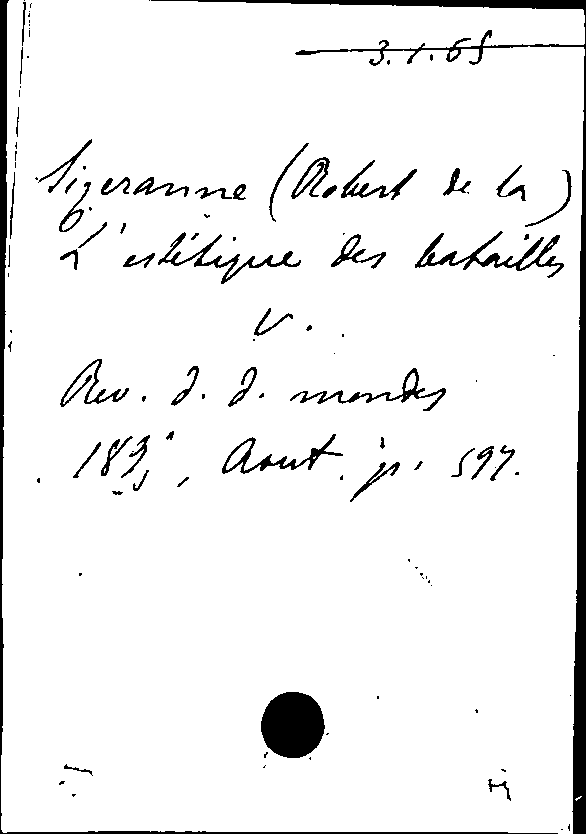 3.1.65
Sizeranne (Robert de la)
L'estétique des batailles
v.
Rev. d. d. mondes
1895, Aout. p. 597.